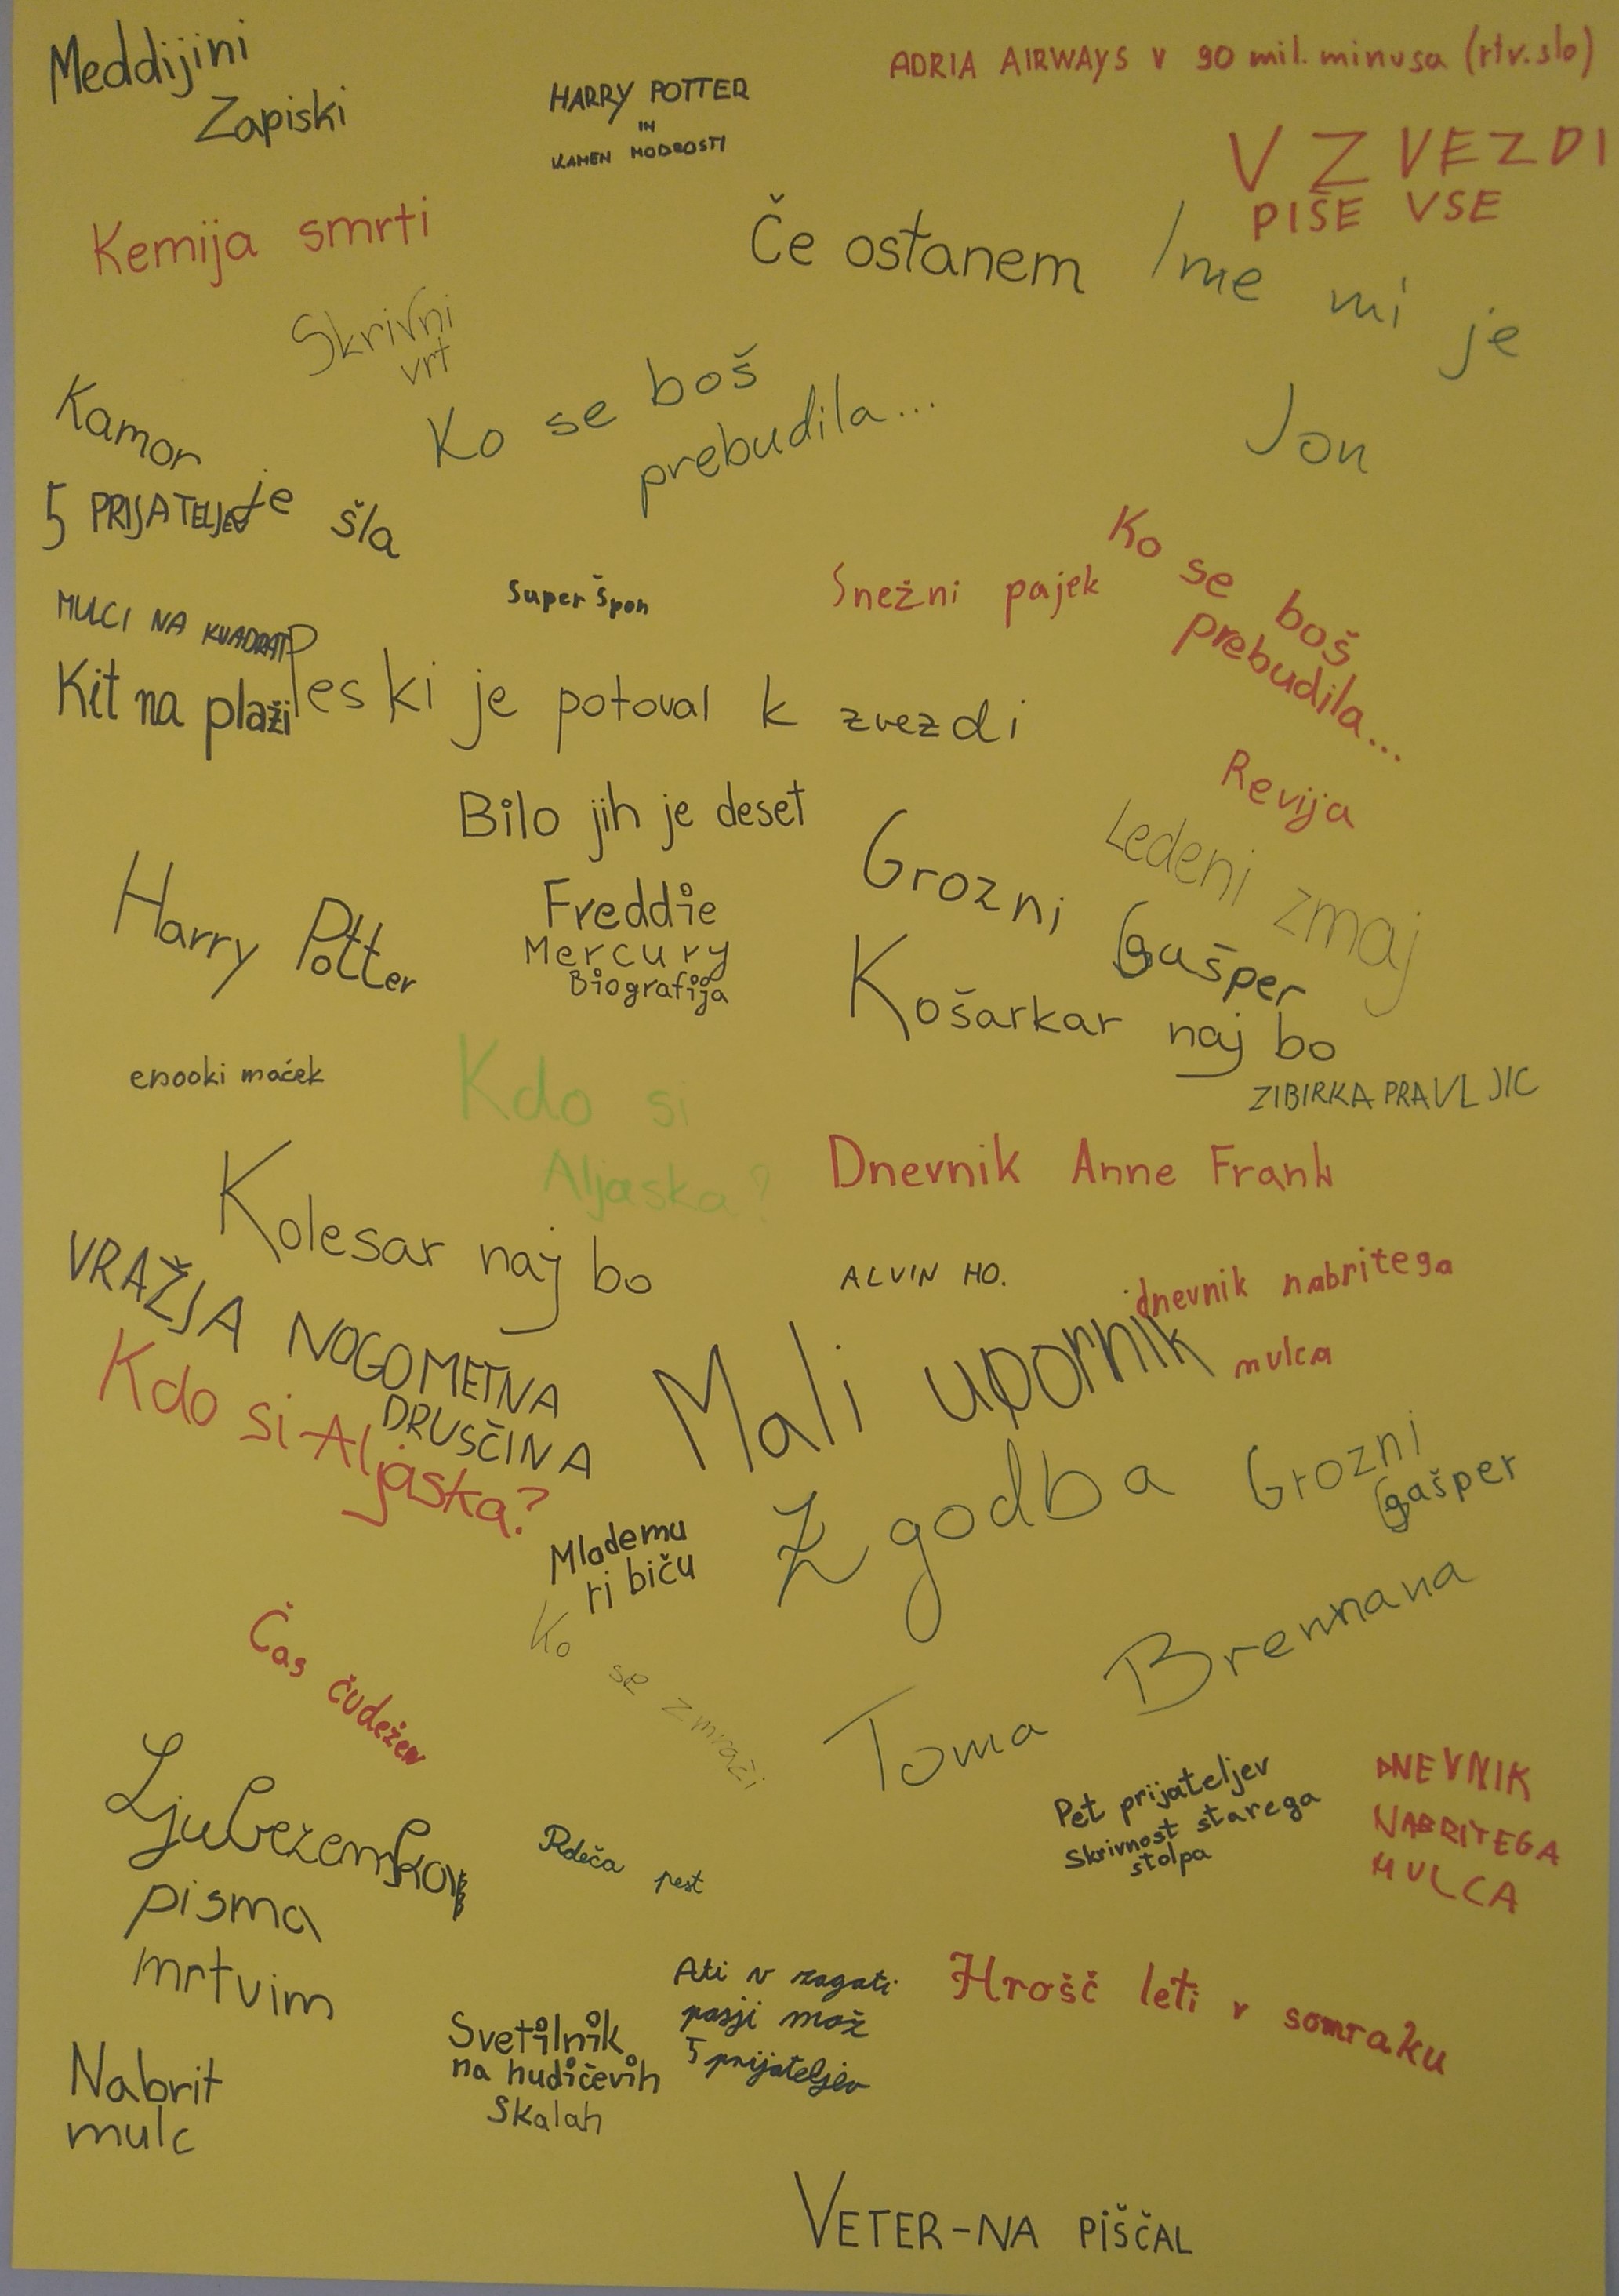 Meddijini
Zapiski
HARRY POTTER
IN
KAMEN MODROSTI
ADRIA AIRWAYS V 90 mil. minusa (rtv.slo)
V ZVEZDI
PIŠE VSE
Kemija smrti
Če ostanem
Ime mi je
Jon
Skrivni
vrt
Ko se boš
prebudila...
Kamor je šla
5 PRIJATELJEV
Super Špon
Snežni pajek
Ko se boš
prebudila...
MULCI NA KVADRAT
Kit na plaži
Pes ki je potoval k zvezdi
Revija
Bilo jih je deset
Ledeni zmaj
Grozni Gašper
Harry Potter
Freddie
Mercury
Biografija
Košarkar naj bo
enooki maček
Kdo si
Aljaska?
ZIBIRKA PRAVLJIC
Dnevnik Anne Frank
Kolesar naj bo
ALVIN HO.
dnevnik nabritega
mulca
VRAŽJA NOGOMETNA
DRUSČINA
Kdo si Aljaska?
Mali upornik
Zgodba
Toma Brennana
Grozni
Gašper
Mlademu
ribiču
Ko se zmrači
Čas čudežev
Ljubezenska
pisma
mrtvim
Rdeča pest
Pet prijateljev
Skrivnost starega
stolpa
DNEVNIK
NABRITEGA
MULCA
Ati v zagati
pasji mož
5 prijateljev
Hrošč leti v somraku
Svetilnik
na hudičevih
Skalah
Nabrit
mulc
VETER-NA PIŠČAL